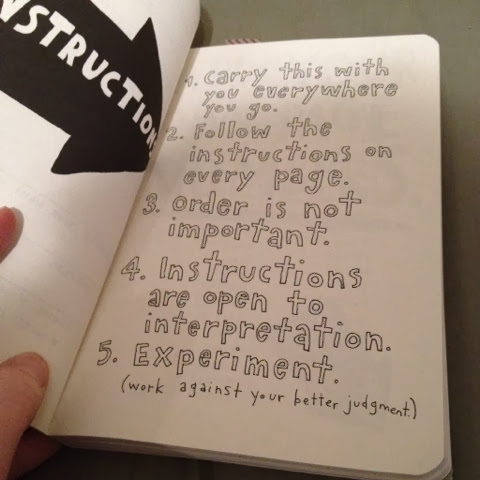 INSTRUCTION
1. Carry this with
you everywhere
you go.
2. Follow the
instructions on
every page.
3. order is not
important.
4. Instructions
are open to
interpretation.
5. Experiment.
(work against your better judgment.)